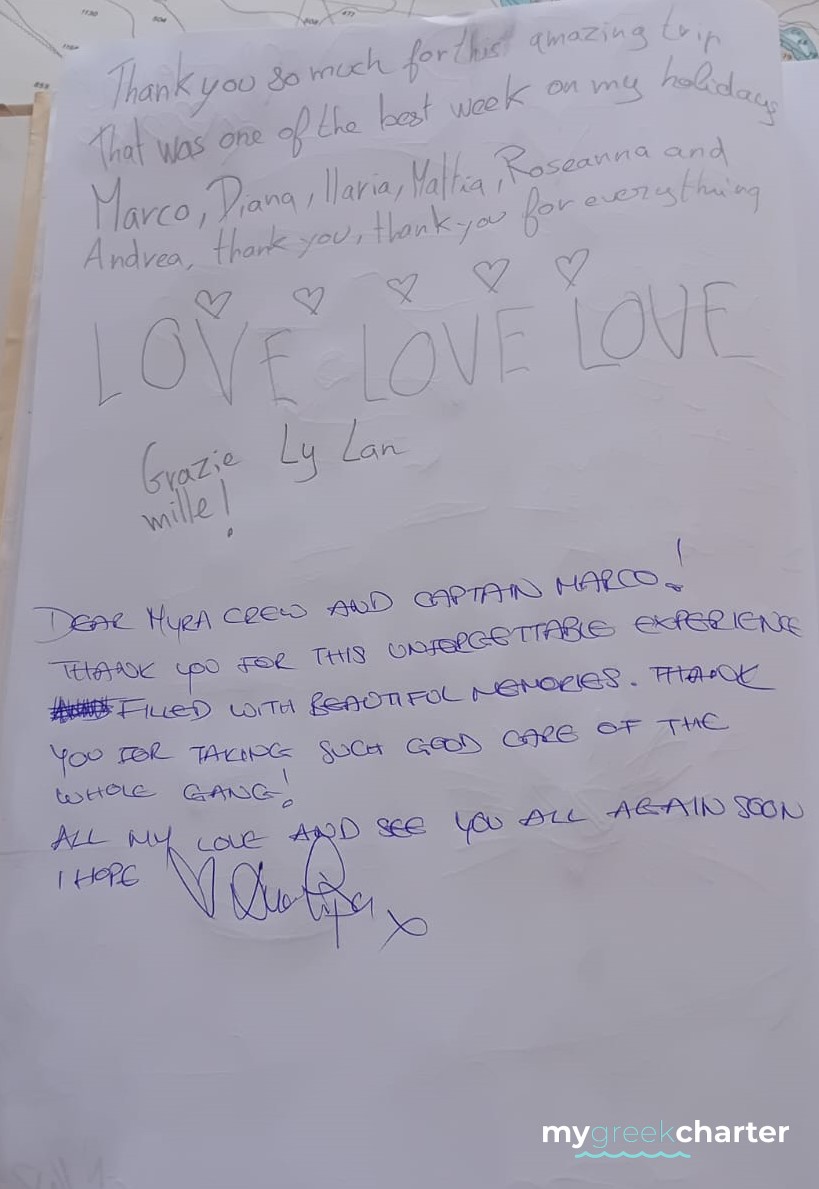 Thank you so much for this amazing trip
That was one of the best week on my holidays
Marco, Diana, Ilaria, Mattia, Roseanna and
Andrea, thank you, thank you for everything
♡ ♡ ♡ ♡ ♡
LOVE LOVE LOVE
Grazie Ly Lan
mille!
DEAR MYRA CREW AND CAPTAIN MARCO!
THANK YOU FOR THIS UNFORGETTABLE EXPERIENCE
FILLED WITH BEAUTIFUL MEMORIES. THANK
YOU FOR TAKING SUCH GOOD CARE OF THE
WHOLE GANG!
ALL MY LOVE AND SEE YOU ALL AGAIN SOON
I HOPE ♡ x
mygreekcharter